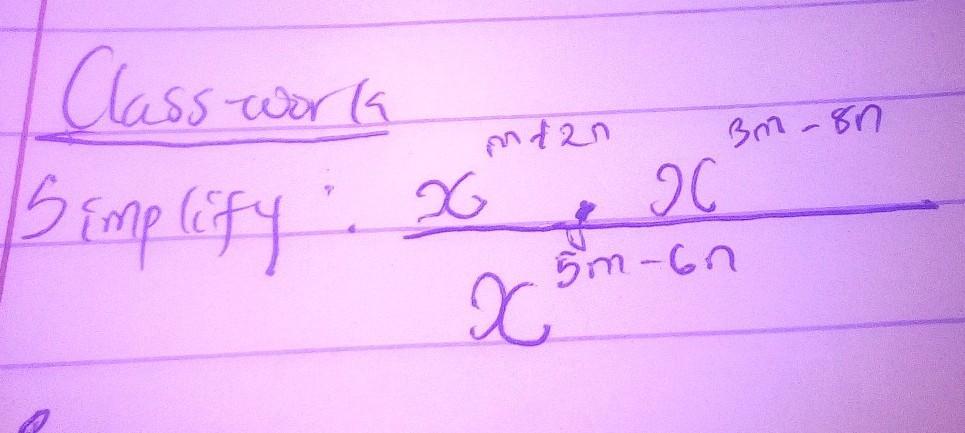 Classwork
Simplify: x^{m+2n} · x^{3m-8n}
x^{5m-6n}